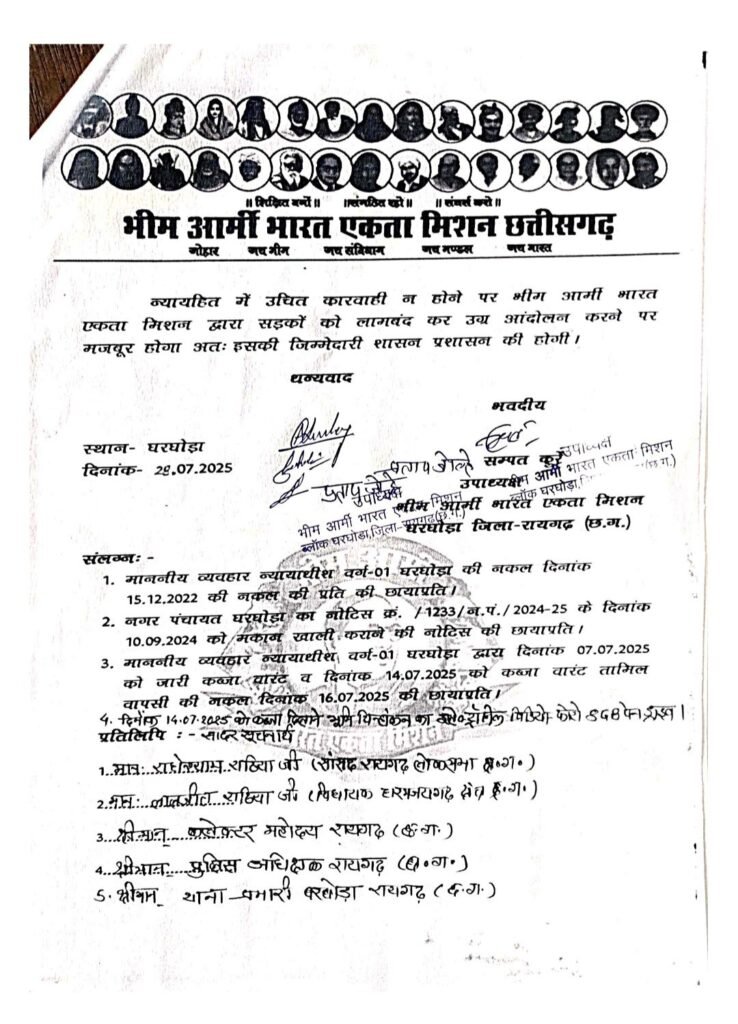 ॥ शिक्षित बनों ॥ ॥संगठित रहो॥ ॥ संघर्ष करो ॥
भीम आर्मी भारत एकता मिशन छत्तीसगढ़
जोहार जय भीम जय संविधान जय मण्डल जय भारत
न्यायहित में उचित कारवाही न होने पर भीम आर्मी भारत
एकता मिशन द्वारा सड़कों को लामबंद कर उग्र आंदोलन करने पर
मजबूर होगा अतः इसकी जिम्मेदारी शासन प्रशासन की होगी।
धन्यवाद
भवदीय
स्थान- घरघोड़ा
दिनांक- 28.07.2025
सम्पत कुर्रे
उपाध्यक्ष
भीम आर्मी भारत एकता मिशन
घरघोड़ा जिला-रायगढ़ (छ.ग.)
उपाध्यक्ष
भीम आर्मी भारत एकता मिशन
ब्लॉक घरघोड़ा, जिला-रायगढ़(छ.ग.)
उपाध्यक्ष
भीम आर्मी भारत एकता मिशन
ब्लॉक घरघोड़ा,
संलग्नः -
1. माननीय व्यवहार न्यायाधीश वर्ग-01 घरघोड़ा की नकल दिनांक
15.12.2022 की नकल की प्रति की छायाप्रति।
2. नगर पंचायत घरघोड़ा का नोटिस क्रं. /1233/न.पं./2024-25 के दिनांक
10.09.2024 को मकान खाली कराने की नोटिस की छायाप्रति।
3. माननीय व्यवहार न्यायाधीश वर्ग-01 घरघोड़ा द्वारा दिनांक 07.07.2025
को जारी कब्जा वारंट व दिनांक 14.07.2025 को कब्जा वारंट तामिल
वापसी की नकल दिनांक 16.07.2025 की छायाप्रति।
4. दिनाँक 14.07.2025 को कब्जा दिलाने भूमि चिन्हांकन का विडियो फोटो
प्रतिलिपि : - सादर सूचनार्थ
1. मान. राधेश्याम राठिया जी (सांसद रायगढ़ लोकसभा छ.ग.)
2. मान. लालजीत राठिया जी (विधायक धरमजयगढ़ क्षेत्र छ.ग.)
3. श्रीमान् कलेक्टर महोदय रायगढ़ (छ.ग.)
4. श्रीमान् पुलिस अधिक्षक रायगढ़ (छ.ग.)
5. श्रीमान् थाना प्रभारी घरघोड़ा रायगढ़ (छ.ग.)